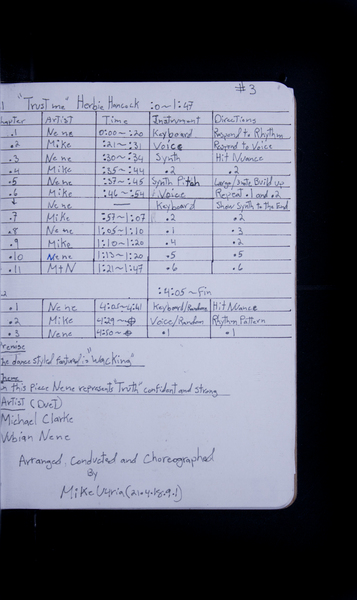 #3
1 "Trust me" Herbie Hancock :0~1:47
Artist Time Instrument Directions
.1 Nene 0:00~:20 Keyboard Respond to Rhythm
.2 Mike :21~:31 Voice Respond to Voice
.3 Nene :30~:34 Synth Hit Nuance
.4 Mike :35~:44 .2 .2
.5 Nene :37~:45 Synth Pitch Large/ Build up
.6 Mike :46~:54 Voice Repeat .1 and .2
↓ Nene — Keyboard Show Synth to the End
.7 Mike :57~1:07 .2 .2
.8 Nene 1:05~1:10 .1 .3
.9 Mike 1:10~1:20 .4 .2
.10 Nene 1:13~1:20 .5 .5
.11 M+N 1:21~1:47 .6 .6
2 :4:05~Fin
.1 Nene 4:05~4:41 Keyboard/Random Hit Nuance
.2 Mike 4:29~ Voice/Random Rhythm Pattern
.3 Nene 4:50~ .1 .1
Premise
The dance styled featured is "Wacking"
Theme
in this piece Nene represents "Truth" confident and strong
Artist (Duet)
Michael Clarke
Nene
Arranged, Conducted and Choreographed
By
Mike (21.4.18.9.1)